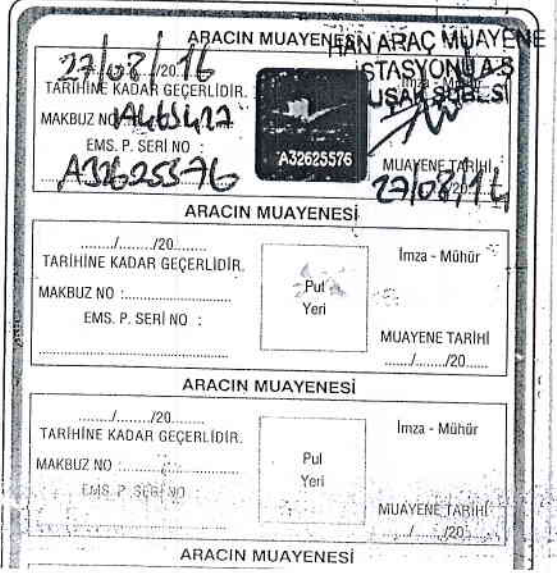 ARACIN MUAYENESİ
HAN ARAÇ MUAYENE
İSTASYONU A.Ş
UŞAK ŞUBESİ
27/08/16
TARİHİNE KADAR GEÇERLİDİR.
İmza - Mühür
MAKBUZ NO :
EMS. P. SERİ NO :
A32625576
A32625576
MUAYENE TARİHİ
27/08/14
ARACIN MUAYENESİ
......../......../20........
TARİHİNE KADAR GEÇERLİDİR.
MAKBUZ NO :........................
EMS. P. SERİ NO :
Pul
Yeri
İmza - Mühür
MUAYENE TARİHİ
....../......../20......
ARACIN MUAYENESİ
......../......../20........
TARİHİNE KADAR GEÇERLİDİR.
MAKBUZ NO :........................
EMS. P. SERİ NO
Pul
Yeri
İmza - Mühür
MUAYENE TARİHİ
....../......../20......
ARACIN MUAYENESİ